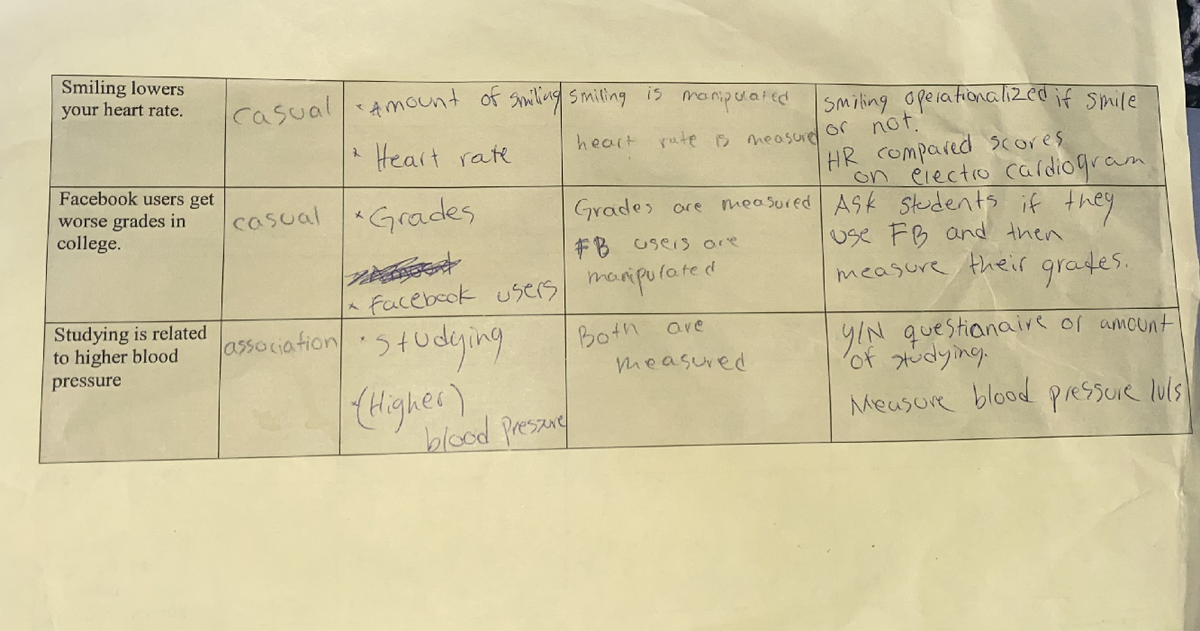 Smiling lowers
your heart rate.
casual
* Amount of smiling
* Heart rate
smiling is manipulated
heart rate is measured
smiling operationalized if smile
or not.
HR compared scores
on electro cardiogram
Facebook users get
worse grades in
college.
casual
* Grades
* Facebook users
Grades are measured
FB users are
manipulated
Ask students if they
use FB and then
measure their grades.
Studying is related
to higher blood
pressure
association
* studying
* (Higher)
blood pressure
Both are
measured
Y/N questianaire of amount
of studying.
Measure blood pressure lvls